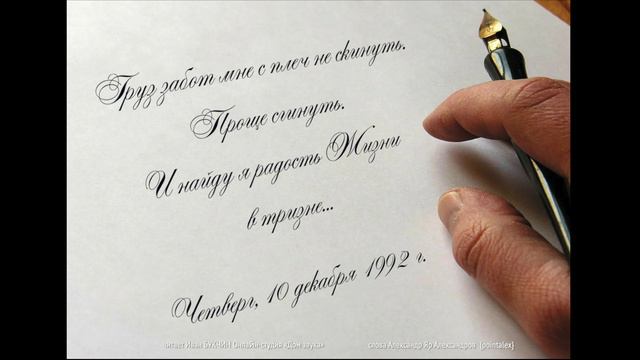 Груз забот мне с плеч не скинуть.
Проще сгинуть.
И найду я радость Жизни
в тризне...
Четверг, 10 декабря 1992 г.
читает Иван БУКЧИН Онлайн-студия «Дом звука» слова Александр Яр Александров (pointalex)